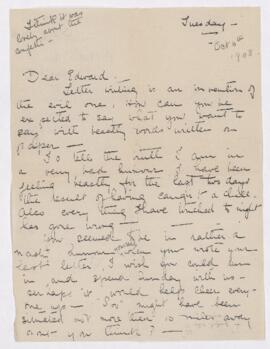 I think it was
lovely about the
Tuesday -
- Oct 6th
1908.
Dear Edward -
Letter writing is an invention of
the evil one, How can you be
expected to say what you want to
say with beastly words written on
paper -
To tell the truth I am in
a very bad humour, I have been
feeling beastly for the last two days
the result of having caught a chill.
Also every thing I have touched to night
has gone wrong -
You seemed to be in rather a
humour when you wrote your
last letter, I wish you could run
in, and spend Sunday with us -
perhaps it would help cheer every-
one up - You might have been
situated not more than 10 miles away
don't you think? -